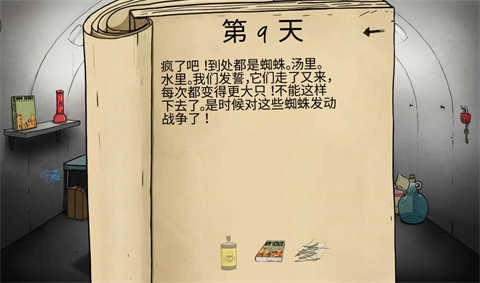 第 9 天
疯了吧!到处都是蜘蛛。汤里。
水里。我们发誓,它们走了又来,
每次都变得更大只!不能这样
下去了。是时候对这些蜘蛛发动
战争了!